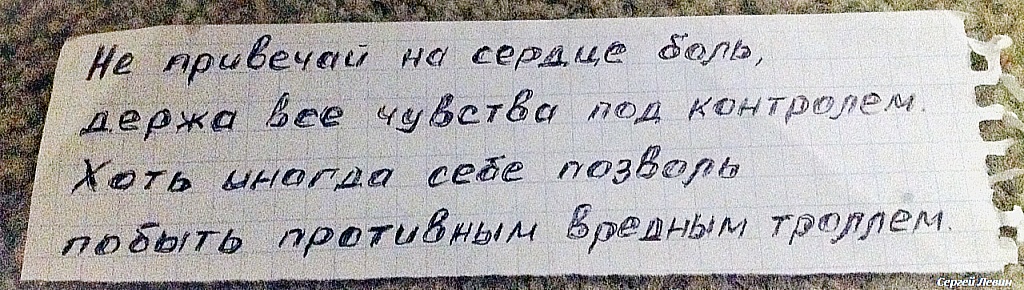 Не привечай на сердце боль,
держа все чувства под контролем.
Хоть иногда себе позволь
побыть противным вредным троллем.
Сергей Левин